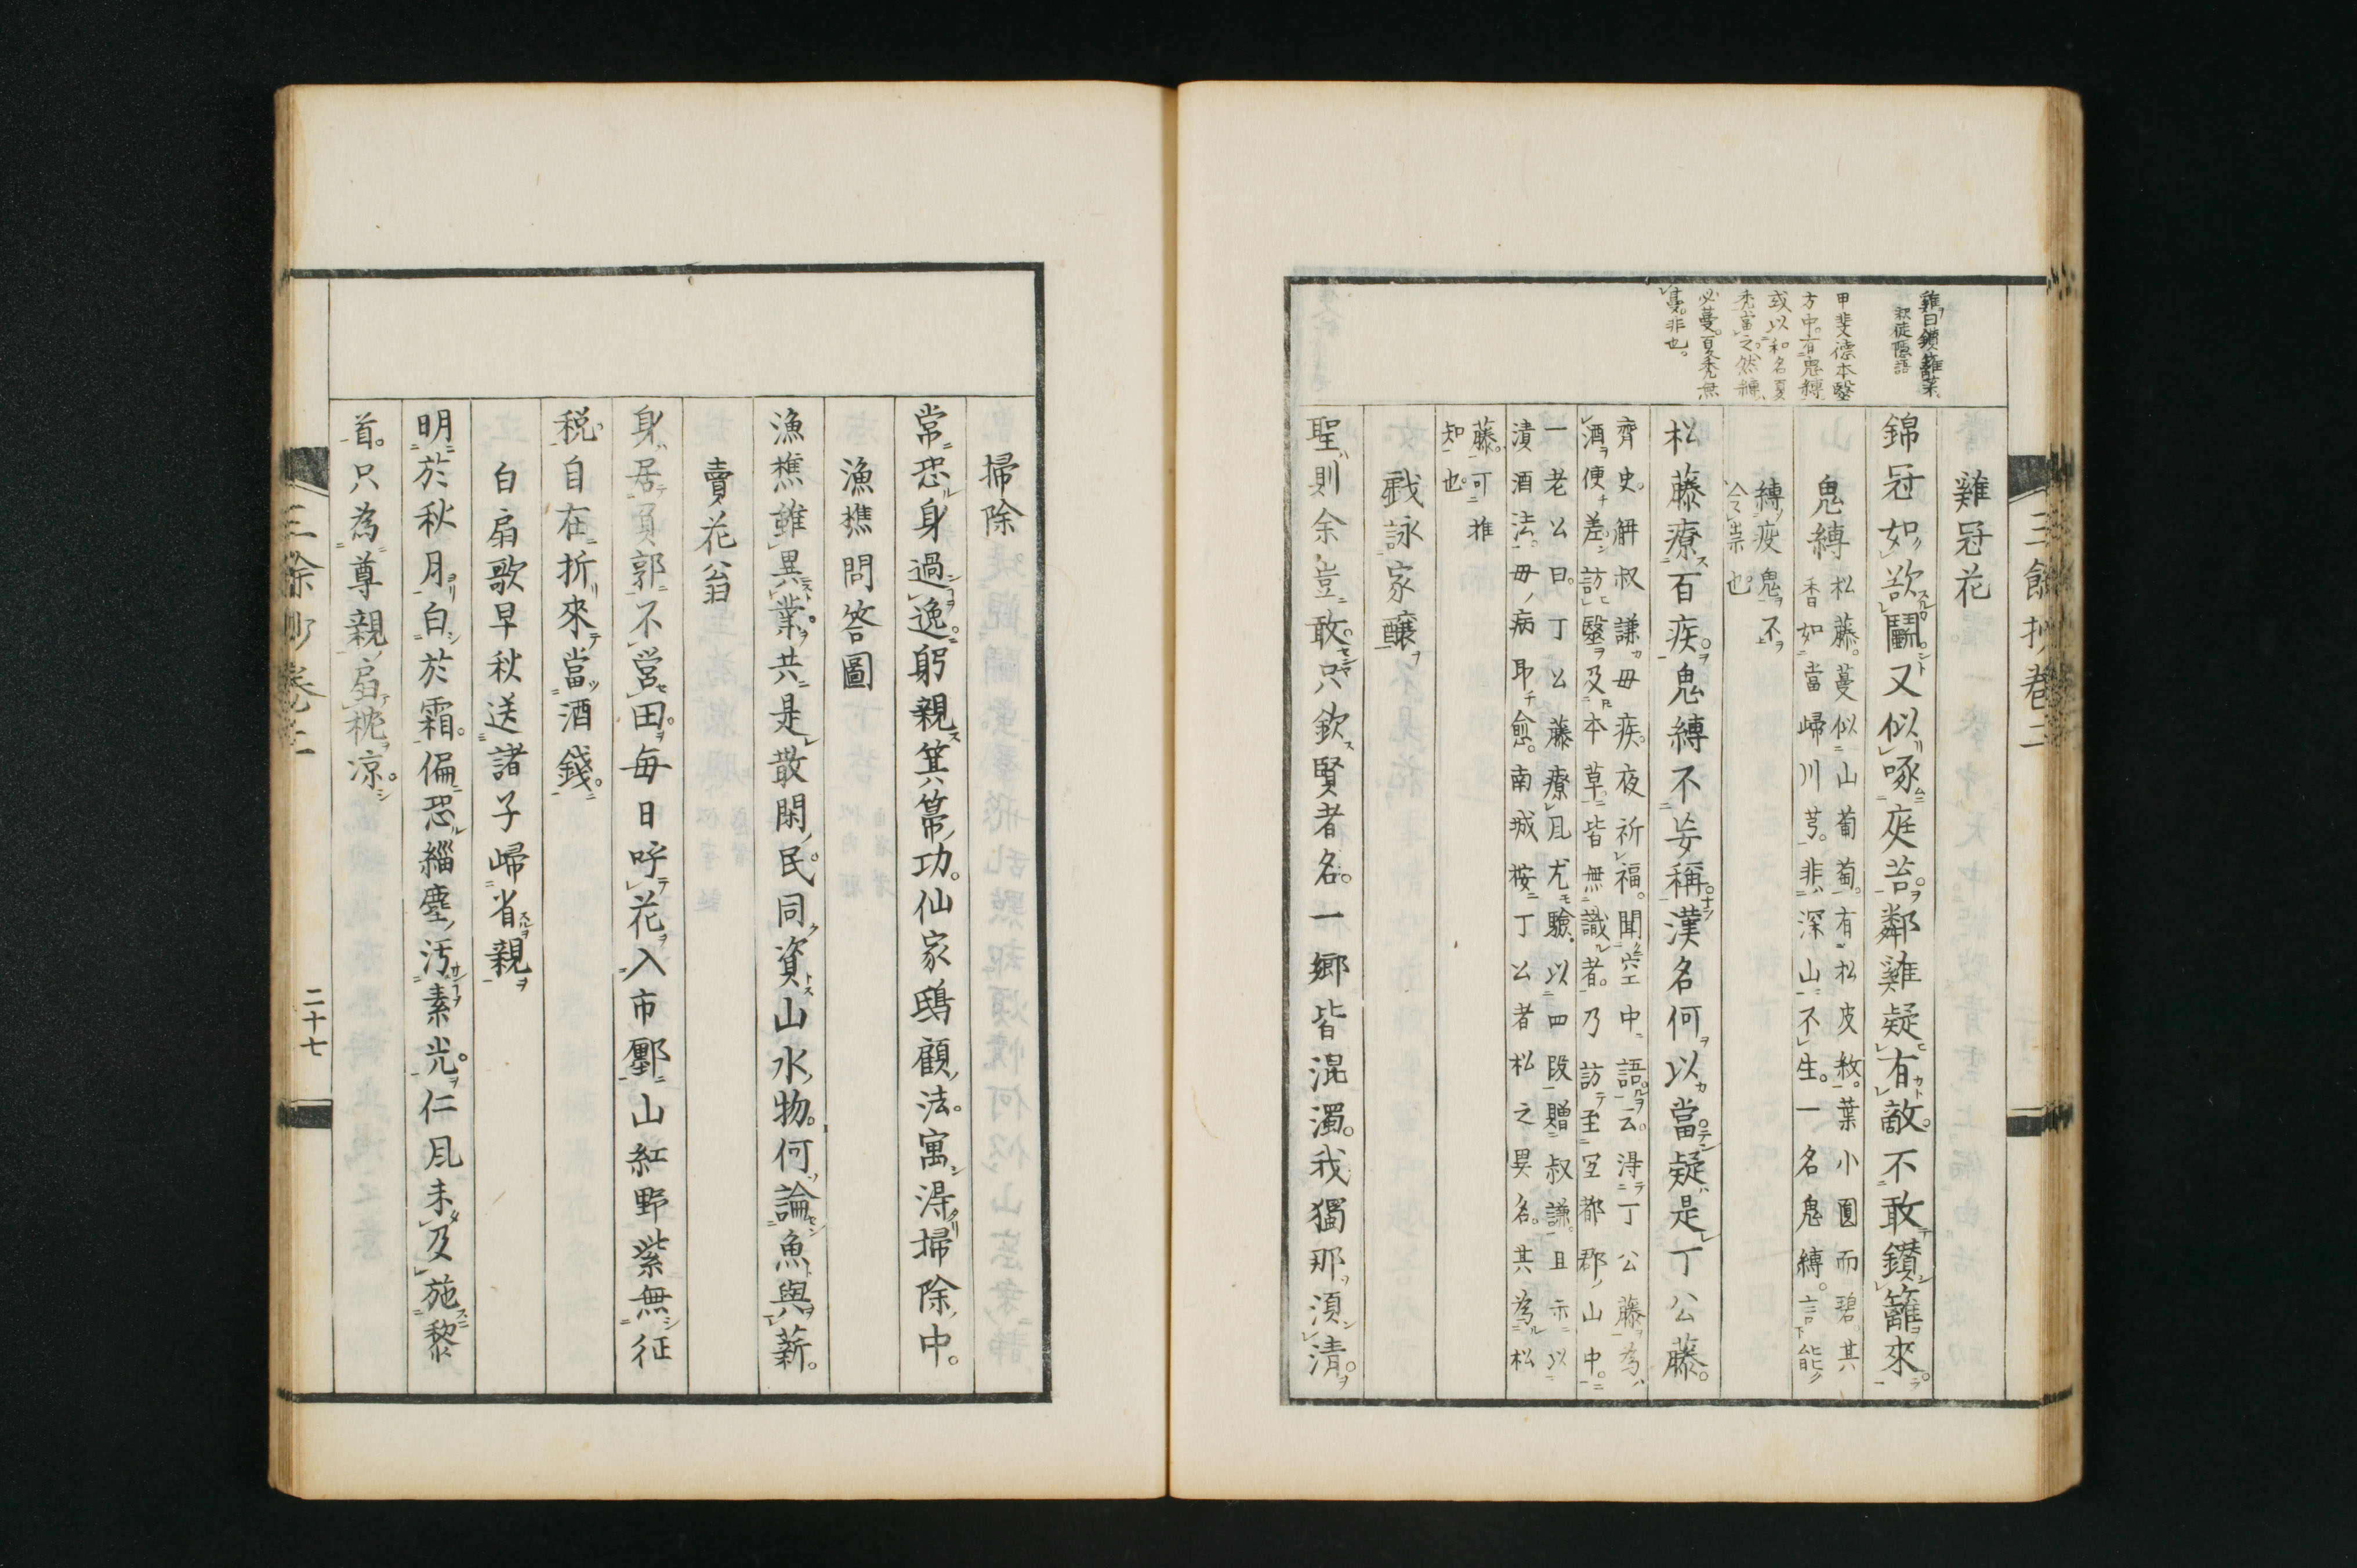 三餘抄卷二
雞曰鑽籬菜。
釈徒隱語
甲斐德本醫
方中。有鬼縛
或以和名夏
禿當之。然縛
必蔓。夏禿無
蔓。非也。
雞冠花
錦冠如欲鬭又似啄庭苔。鄰雞疑有敵。不敢鑽籬來。
鬼縛
松藤。蔓似山葡萄。有松皮敘。葉小圓而碧。其
香如當歸川芎。非深山不生。一名鬼縛。言能
縛疫鬼不
令祟也
松藤療百疾。鬼縛不妄稱。漢名何以當。疑是丁公藤。
齊史。解叔謙母疾。夜祈福。聞空中語。云。得丁公藤為
酒。便差。訪醫及本草。皆無識者。乃訪至宜都郡山中。
一老公曰。丁公藤療風尤驗。以四段贈叔謙。且示以
漬酒法。母病即愈。南城按丁公者松之異名。其為松
藤。可推
知也。
戱詠家釀
聖則余豈敢。只欽賢者名。一鄉皆混濁。我獨那須清。
掃除
常恐身過逸。躬親箕箒功。仙家鴟顧法。寓得掃除中。
漁樵問答圖
漁樵雖異業。共是散閑民。同資山水物。何論魚與薪。
賣花翁
身居負郭不營田。每日呼花入市鄽。山紅野紫無征
税。自在折來當酒錢。
白扇歌早秋送諸子歸省親
明於秋月白於霜。偏恐緇塵汚素光。仁風未及施黎
首。只為尊親扇枕凉。
三餘抄卷二
二十七